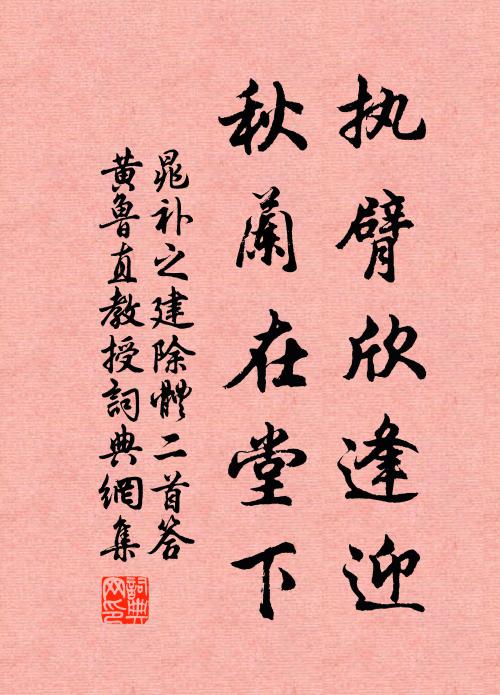 执臂欣逢迎
秋蘭在堂下
晁补之建除體二首答
黄鲁直教授詞典網集
詞典网印